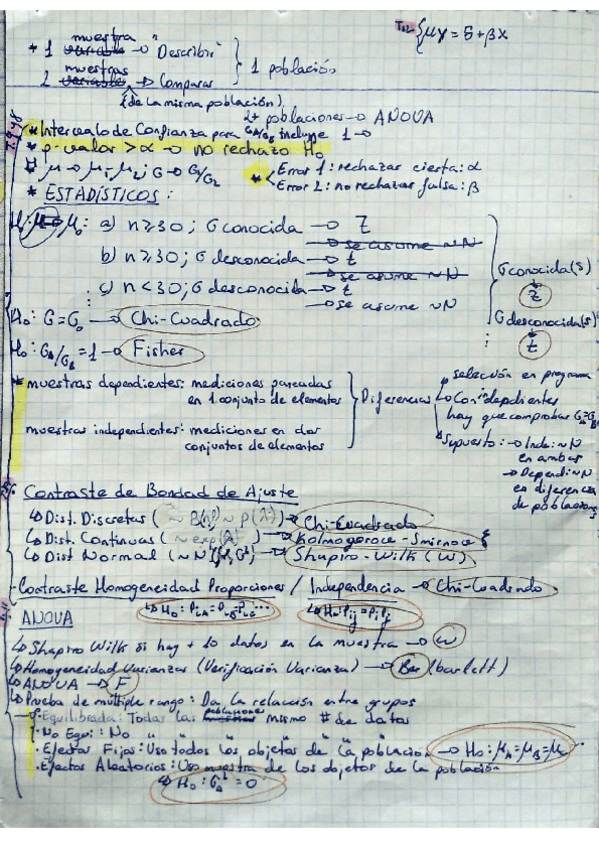 T12 { μy = δ + βx
* 1 muestra → "Describir"
2 muestras → Comparar } 1 población
(de la misma población)
2+ poblaciones → ANOVA
* Intervalo de Confianza para σA/σB incluye 1 →
* p-valor > α → no rechazo H₀
* μ → μ₁, μ₂; σ → σ₁/σ₂
* Error 1: rechazar cierta: α
Error 2: no rechazar falsa: β
* ESTADÍSTICOS:
H₀: μ = μ₀: a) n ≥ 30; σ conocida → Z
se asume ~N
b) n ≥ 30; σ desconocida → t
se asume ~N
c) n < 30; σ desconocida → t
→ se asume ~N
σ conocida(s)
Z
σ desconocida(s)
t
H₀: σ = σ₀ → Chi-Cuadrado
H₀: σA/σB = 1 → Fisher
* muestras dependientes: mediciones pareadas
en 1 conjunto de elementos
muestras independientes: mediciones en dos
conjuntos de elementos
} Diferencias
selección en programa
Con dependientes
hay que comprobar σA=σB
Supuesto: → Inde: ~N
en ambas
→ Depend: ~N
en diferencia
de poblaciones
Contraste de Bondad de Ajuste
↳ Dist. Discretas ( ~ P(λ)) → Chi-Cuadrado
↳ Dist. Continuas ( ~ exp(λ) ) → Kolmogorov-Smirnov
↳ Dist Normal ( ~ N(μ, σ²) ) → Shapiro-Wilk (W)
- Contraste Homogeneidad Proporciones / Independencia → Chi-Cuadrado
↳ H₀: P₁A = P₁B = P₁C ... ↳ H₀: Pij = Pi Pj
ANOVA
↳ Shapiro Wilk si hay + 10 datos en la muestra → W
↳ Homogeneidad Varianzas (Verificación Varianza) → Bar (barlett)
↳ ANOVA → F
↳ Prueba de múltiple rango: Da la relación entre grupos
· Equilibrada: Todas las poblaciones mismo # de datos
· No Equi: No " " " "
· Efectos Fijos: Uso todos los objetos de la población → H₀: μA = μB = μC
· Efectos Aleatorios: Uso muestra de los objetos de la población
↳ H₀: σA² = 0